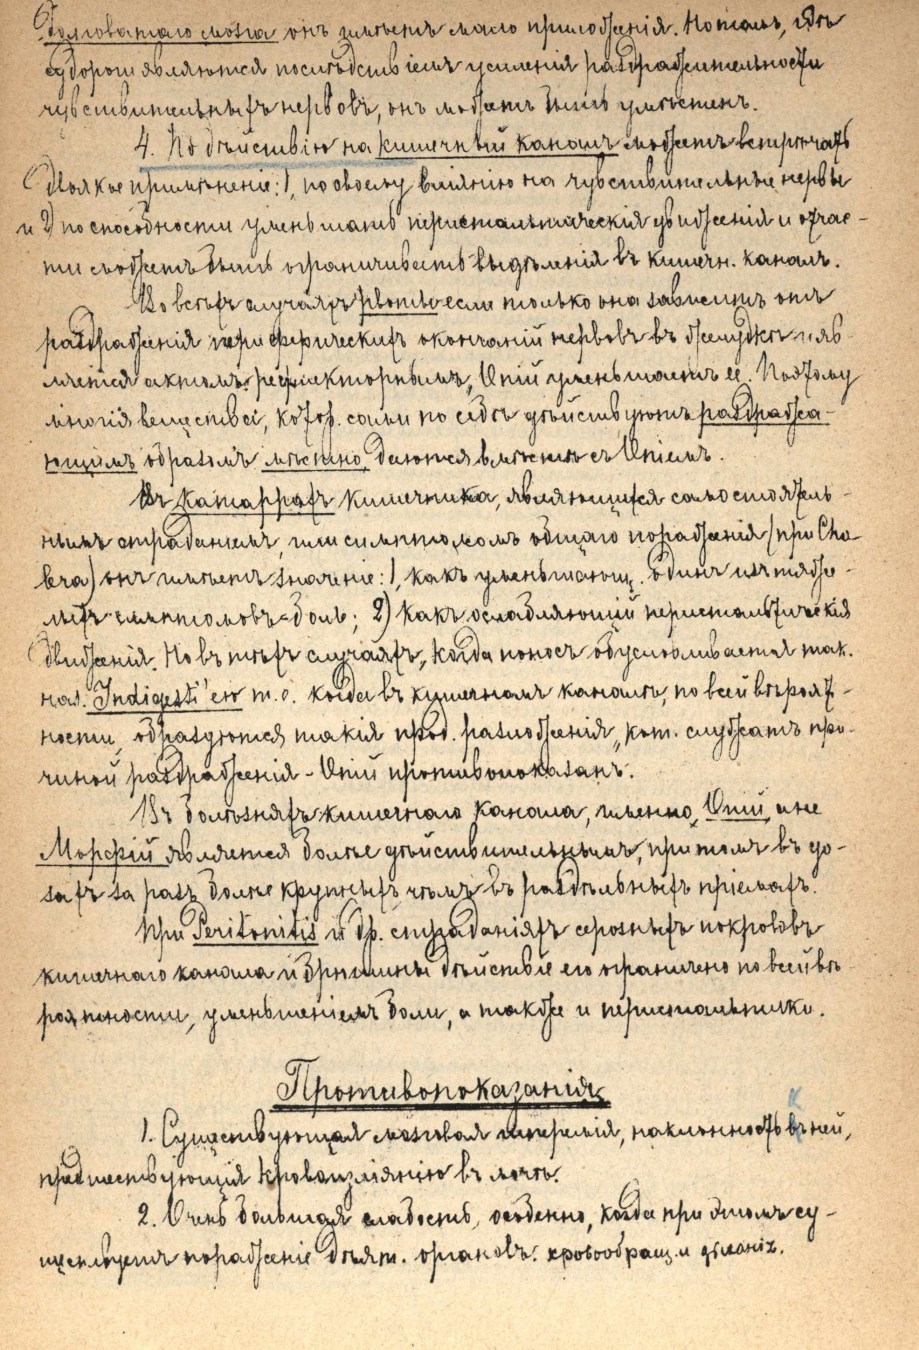 Болговатаго мозга онъ имѣетъ мало приложенія. Но тамъ, гдѣ
судороги являются послѣдствіемъ усиленія раздражительности
чувствительныхъ нервовъ, онъ можетъ быть умѣстенъ.
4. По дѣйствію на кишечный каналъ можетъ встрѣчать
двоякое примѣненіе: 1, по своему вліянію на чувствительные нервы
и 2) по способности уменьшать перистальтическія движенія и отчас-
ти можетъ быть ограничивать выдѣленія въ кишечн. каналъ.
Во всѣхъ случаяхъ рвоты если только она зависитъ отъ
раздраженія периферическихъ окончаній нервовъ въ желудкѣ и яв-
ляется актомъ рефлекторнымъ, Опій уменьшаетъ ее. Поэтому
многія вещества, котор. сами по себѣ дѣйствуютъ раздража-
ющимъ образомъ мѣстно, даются вмѣстѣ съ Опіемъ.
Въ катаррахъ кишечника, являющихся самостоятель-
нымъ страданіемъ, или симптомомъ общаго пораженія (при Cho-
lera) онъ имѣетъ значеніе: 1, какъ уменьшающ. одинъ изъ тяже-
лыхъ симптомовъ - боль; 2) какъ ослабляющій перистальтическія
движенія. Но въ тѣхъ случаяхъ, когда поносъ обусловливается так.
наз. Indigesti'ею т. е. когда въ кишечномъ каналѣ, по всей вѣроят-
ности, образуются такія прод. разложенія, кот. служатъ при-
чиной раздраженія - Опій противопоказанъ.
Въ болѣзняхъ кишечнаго канала, именно, Опій, а не
Морфій является болѣе дѣйствительнымъ, притомъ въ до-
захъ за разъ болѣе крупныхъ, чѣмъ въ раздѣльныхъ пріемахъ.
При Peritonitis и др. страданіяхъ серозныхъ покрововъ
кишечнаго канала и брюшины дѣйствіе его ограничено по всей вѣ-
роятности, уменьшеніемъ боли, а также и перистальтики.
Противопоказанія
1. Существующая мозговая гиперемія, наклонность къ ней,
предшествующія кровоизліянію въ мозгъ.
2. Очень большая слабость, особенно, когда при этомъ су-
ществуетъ пораженіе дѣят. органовъ кровообращ. и дыханія.